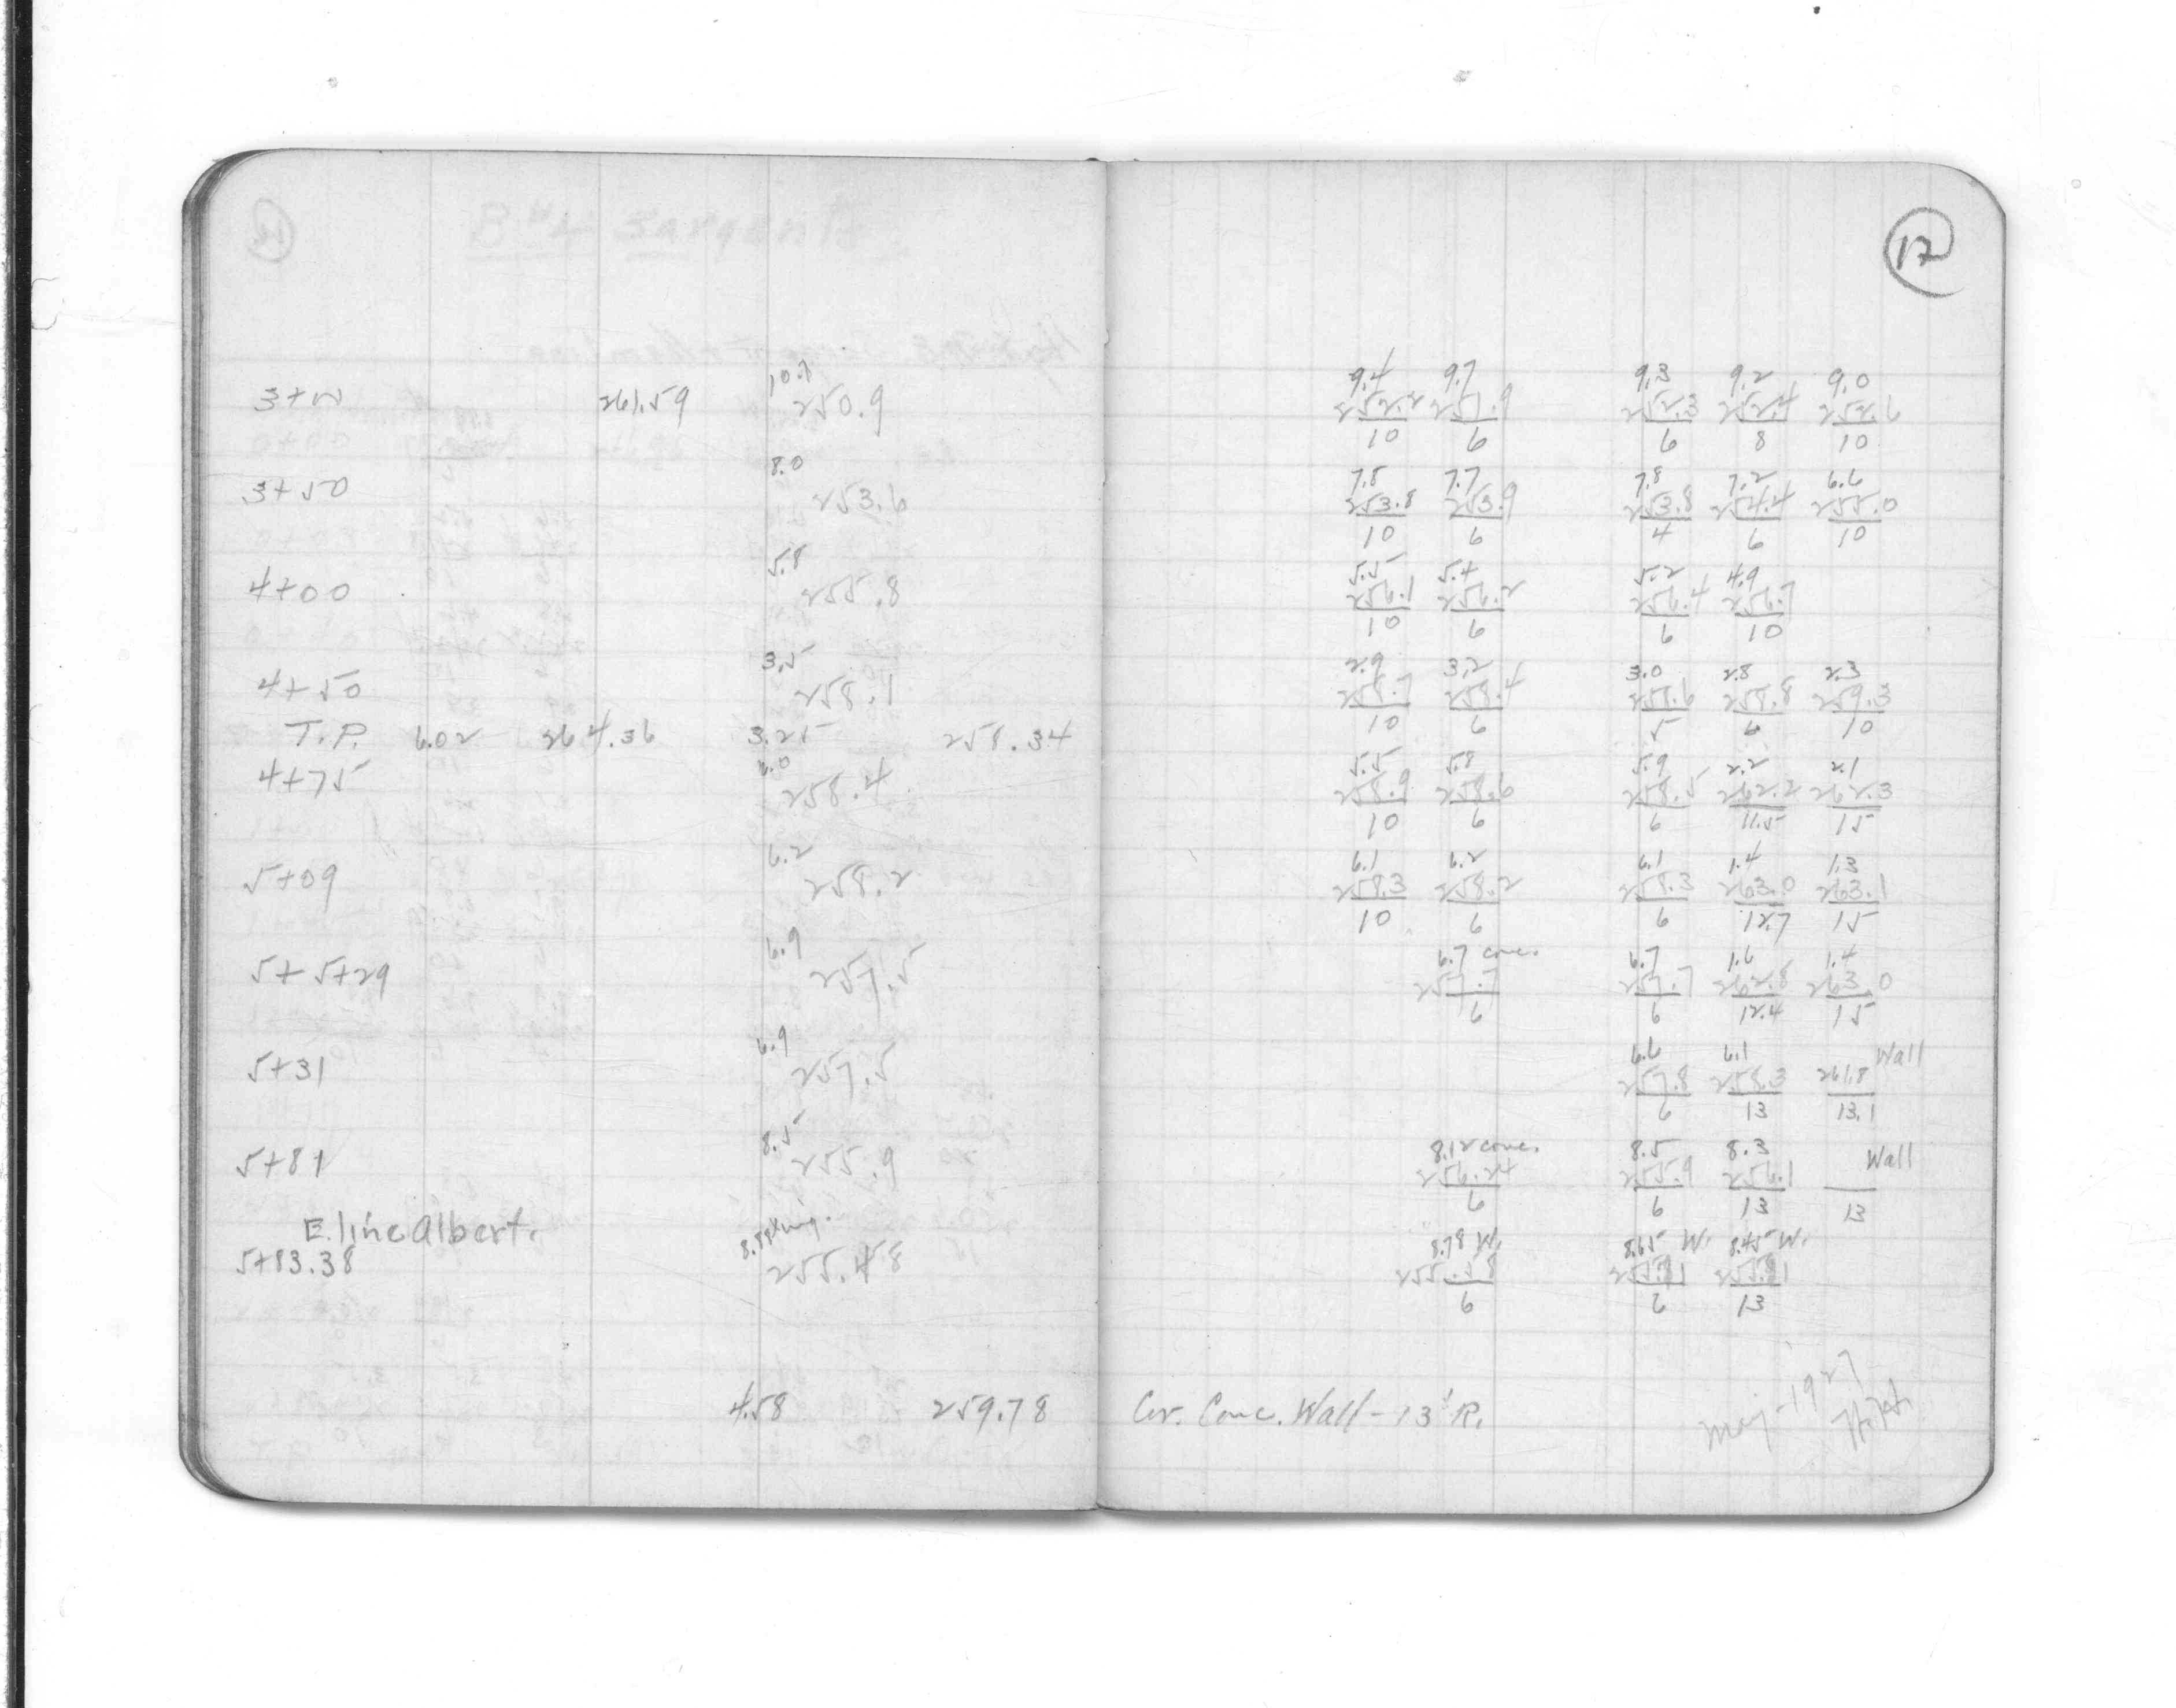 12
3+00 261.59 10.7 250.9 9.4 252.2 10 9.7 251.9 6 9.3 252.3 6 9.2 252.4 8 9.0 252.6 10
3+50 8.0 253.6 7.8 253.8 10 7.7 253.9 6 7.8 253.8 4 7.2 254.4 6 6.6 255.0 10
4+00 5.8 255.8 5.5 256.1 10 5.4 256.2 6 5.2 256.4 6 4.9 256.7 10
4+50 3.5 258.1 2.9 258.7 10 3.2 258.4 6 3.0 258.6 5 2.8 258.8 6 2.3 259.3 10
T.P. 6.02 264.36 3.25 258.34
4+75 6.0 258.4 5.5 258.9 10 5.8 258.6 6 5.9 258.5 6 2.2 262.2 11.5 2.1 262.3 15
5+09 6.2 258.2 6.1 258.3 10 6.2 258.2 6 6.1 258.3 6 1.4 263.0 12.7 1.3 263.1 15
5+5+29 6.9 257.5 6.7 conc. 257.7 6 6.7 257.7 6 1.6 262.8 12.4 1.4 263.0 15
5+31 6.9 257.5 6.6 257.8 6 6.1 258.3 13 261.8 13.1 Wall
5+81 8.5 255.9 8.12 conc. 256.24 6 8.5 255.9 6 8.3 256.1 13 13 Wall
E. line Albert.
5+83.38 255.48 8.78 W. 255.58 6 8.65 W. 6 8.45 W. 13
4.58 259.78 Cor. Conc. Wall - 13' R.
May-1927
H.H.